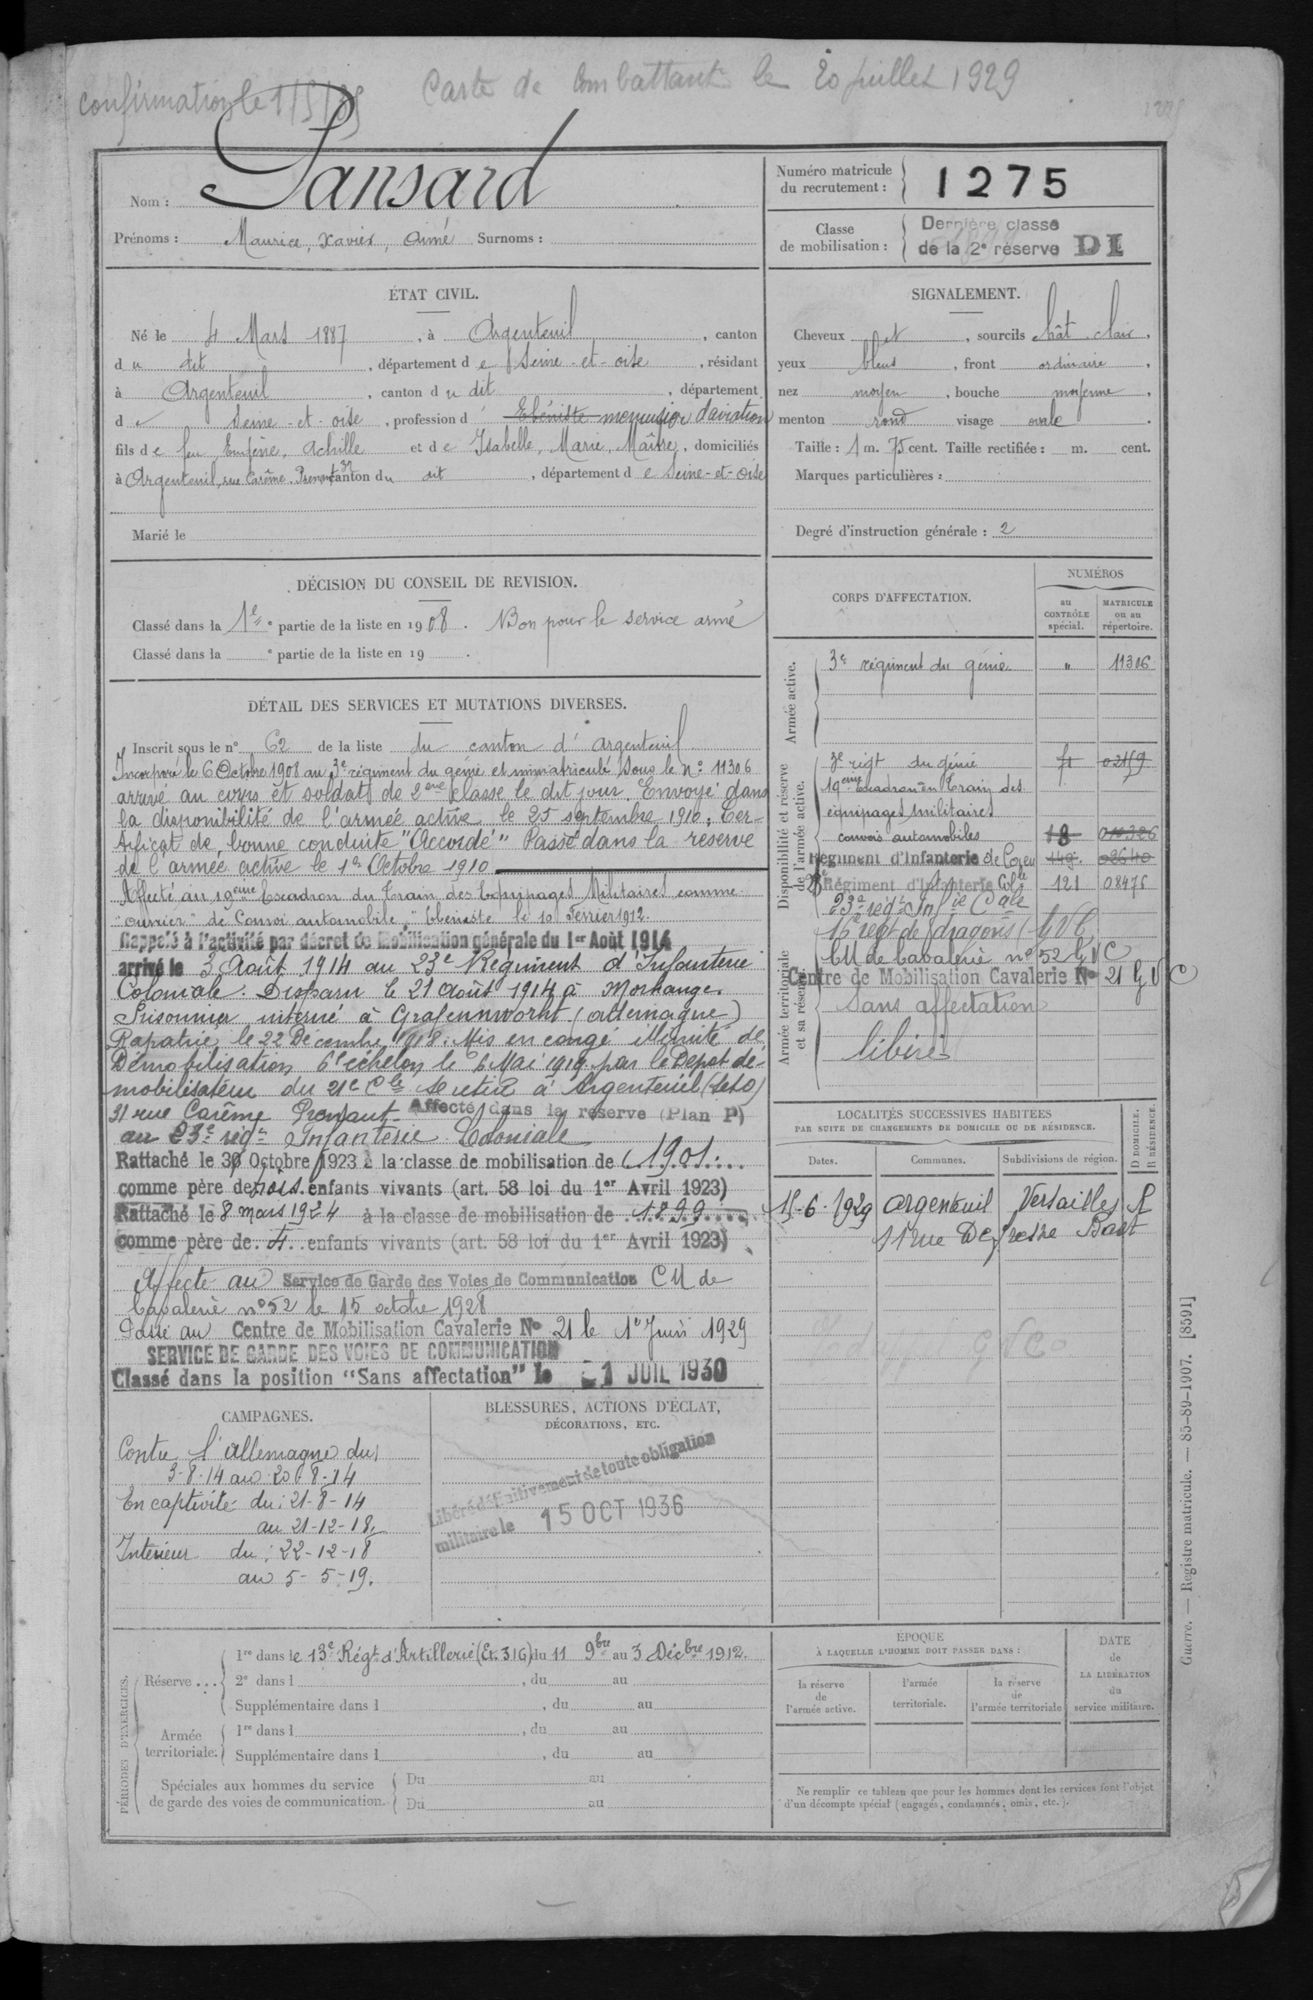 confirmation le 1/5/35
Carte de Combattant le 20 juillet 1929
Nom : Pansard
Prénoms : Maurice, Xavier, Aimé Surnoms :
Numéro matricule du recrutement : 1275
Classe de mobilisation : Dernière classe de la 2e réserve DI
ÉTAT CIVIL.
Né le 4 Mars 1887, à Argenteuil, canton
du dit, département de Seine-et-oise, résidant
à Argenteuil, canton du dit, département
de Seine-et-oise, profession d' Ebéniste menuisier d'aviation
fils de feu Eugène, Achille et de Isabelle, Marie, Maître, domiciliés
à Argenteuil, rue Carême Prenant 31 canton du dit, département de Seine-et-oise
Marié le
SIGNALEMENT.
Cheveux et, sourcils chât. clair,
yeux bleus, front ordinaire,
nez moyen, bouche moyenne,
menton rond visage ovale.
Taille : 1 m. 75 cent. Taille rectifiée : m. cent.
Marques particulières :
Degré d'instruction générale : 2
DÉCISION DU CONSEIL DE REVISION.
Classé dans la 1e partie de la liste en 1908. Bon pour le service armé
Classé dans la e partie de la liste en 19 .
DÉTAIL DES SERVICES ET MUTATIONS DIVERSES.
Inscrit sous le n° 62 de la liste du canton d'argenteuil
Incorporé le 6 Octobre 1908 au 3e régiment du génie et immatriculé sous le n° 11306
arrivé au corps et soldat de 2eme classe le dit jour. Envoyé dans
la disponibilité de l'armée active le 25 septembre 1910, Cer-
tificat de bonne conduite "Accordé" Passé dans la réserve
de l'armée active le 1er Octobre 1910
Affecté au 19eme Escadron du Train des Equipages Militaires comme
"ouvrier" de Convoi automobile, "Ebéniste" le 10 Février 1912.
Rappelé à l'activité par décret de Mobilisation générale du 1er Août 1914
arrivé le 3 Août 1914 au 23e Régiment d'Infanterie
Coloniale. Disparu le 21 août 1914 à Morhange.
Prisonnier interné à Grafennworht (allemagne)
Rapatrié le 22 Décembre 1918. Mis en congé illimité de
Démobilisation 6e échelon le 6 Mai 1919 par le Dépot dé-
mobilisateur du 21e Cle se retire à Argenteuil (SetO)
31 rue Carême Prenant. Affecté dans la réserve (Plan P)
au 23e régt Infanterie Coloniale
Rattaché le 30 Octobre 1923 à la classe de mobilisation de 1901
comme père de trois enfants vivants (art. 58 loi du 1er Avril 1923)
Rattaché le 8 mars 1924 à la classe de mobilisation de 1899
comme père de 4 enfants vivants (art. 58 loi du 1er Avril 1923)
Affecté au Service de Garde des Voies de Communication CM de
Cavalerie n° 52 le 15 octobre 1928
Passé au Centre de Mobilisation Cavalerie No 21 le 1er Juin 1929
SERVICE DE GARDE DES VOIES DE COMMUNICATION
Classé dans la position "Sans affectation" le 1 JUIL 1930
CORPS D'AFFECTATION.
NUMÉROS
au CONTRÔLE spécial.
MATRICULE ou au répertoire.
Armée active.
3e régiment du génie " 11306
Disponibilité et réserve de l'armée active.
3e régt du génie 71 02159
19eme escadron du Train des
équipages militaires
convois automobiles 18
Régiment d'Infanterie 149
23e Régiment d'Infanterie Colle 121 08476
23e régt Infie Cale
Armée territoriale et sa réserve
16e regt de dragons GVC
CM de Cavalerie n° 52 GVC
Centre de Mobilisation Cavalerie No 21 GVC
Sans affectation
libéré
LOCALITÉS SUCCESSIVES HABITÉES
PAR SUITE DE CHANGEMENTS DE DOMICILE OU DE RÉSIDENCE.
D DOMICILE. R RÉSIDENCE.
Dates. Communes. Subdivisions de région.
15-6-1929 argenteuil Versailles R
11 rue
CAMPAGNES.
Contre l'allemagne du
3-8-14 au 20-8-14
En captivité du 21-8-14
au 21-12-18.
Intérieur du 22-12-18
au 5-5-19.
BLESSURES, ACTIONS D'ÉCLAT,
DÉCORATIONS, ETC.
Libéré définitivement de toute obligation
militaire le 15 OCT 1936
PÉRIODES D'EXERCICES.
Réserve ... 1re dans le 13e Régt d'Artillerie (Et. 316) du 11 9bre au 3 Décbre 1912.
2e dans l , du au
Supplémentaire dans l , du au
Armée territoriale: 1re dans l , du au
Supplémentaire dans l , du au
Spéciales aux hommes du service de garde des voies de communication. Du au
Du au
ÉPOQUE
À LAQUELLE L'HOMME DOIT PASSER DANS :
la réserve de l'armée active.
l'armée territoriale.
la réserve de l'armée territoriale
DATE de LA LIBÉRATION du service militaire.
Ne remplir ce tableau que pour les hommes dont les services font l'objet
d'un décompte spécial (engagés, condamnés, omis, etc.).
Guerre. — Registre matricule. — 85-89-1907. [8591]